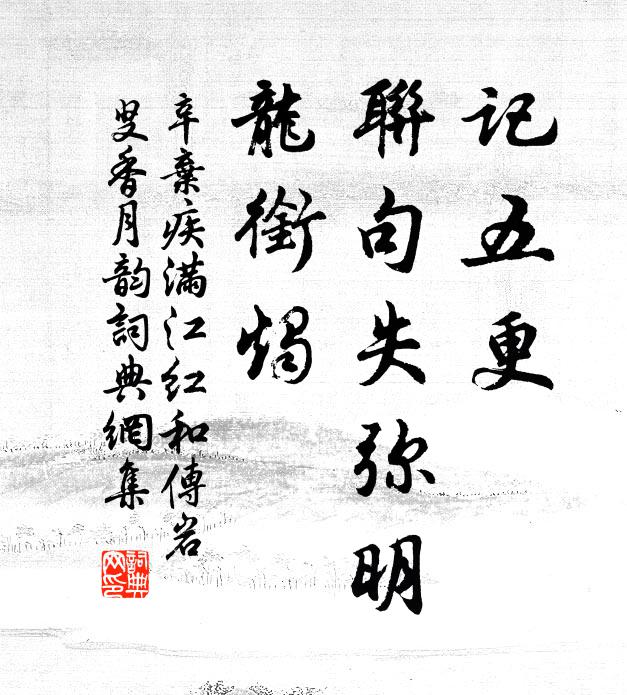 記五更
聯句失弥明
龍銜燭
辛棄疾滿江紅和傅岩
叟香月韵詞典網集
詞典
网印